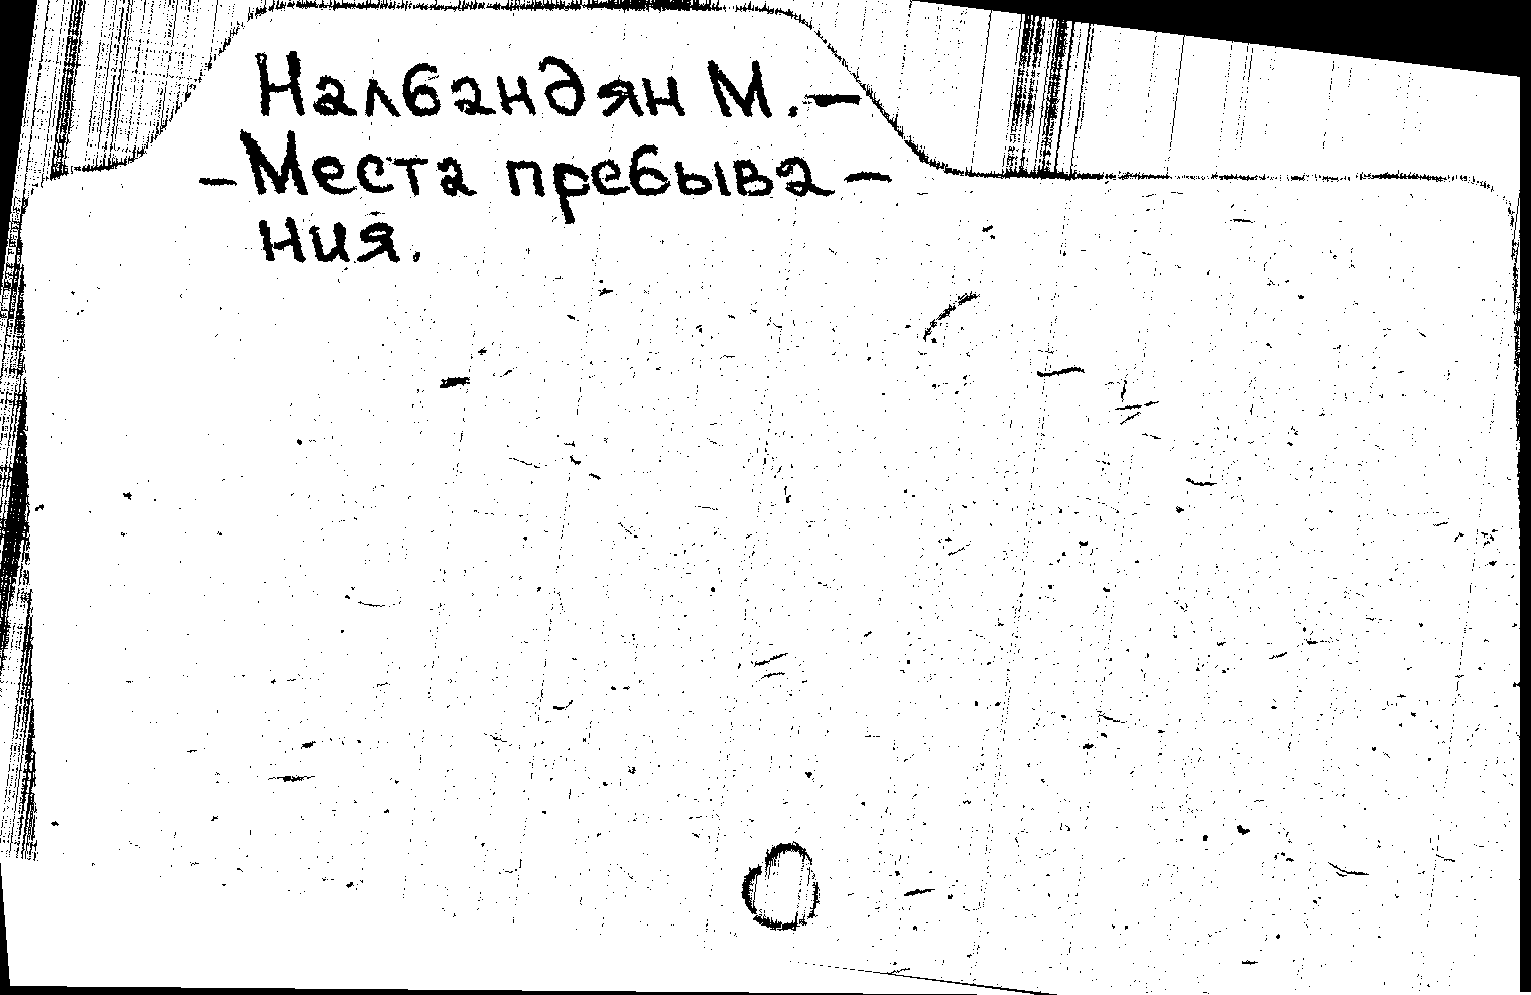 Налбандян М. —
— Места пребыва —
ния.